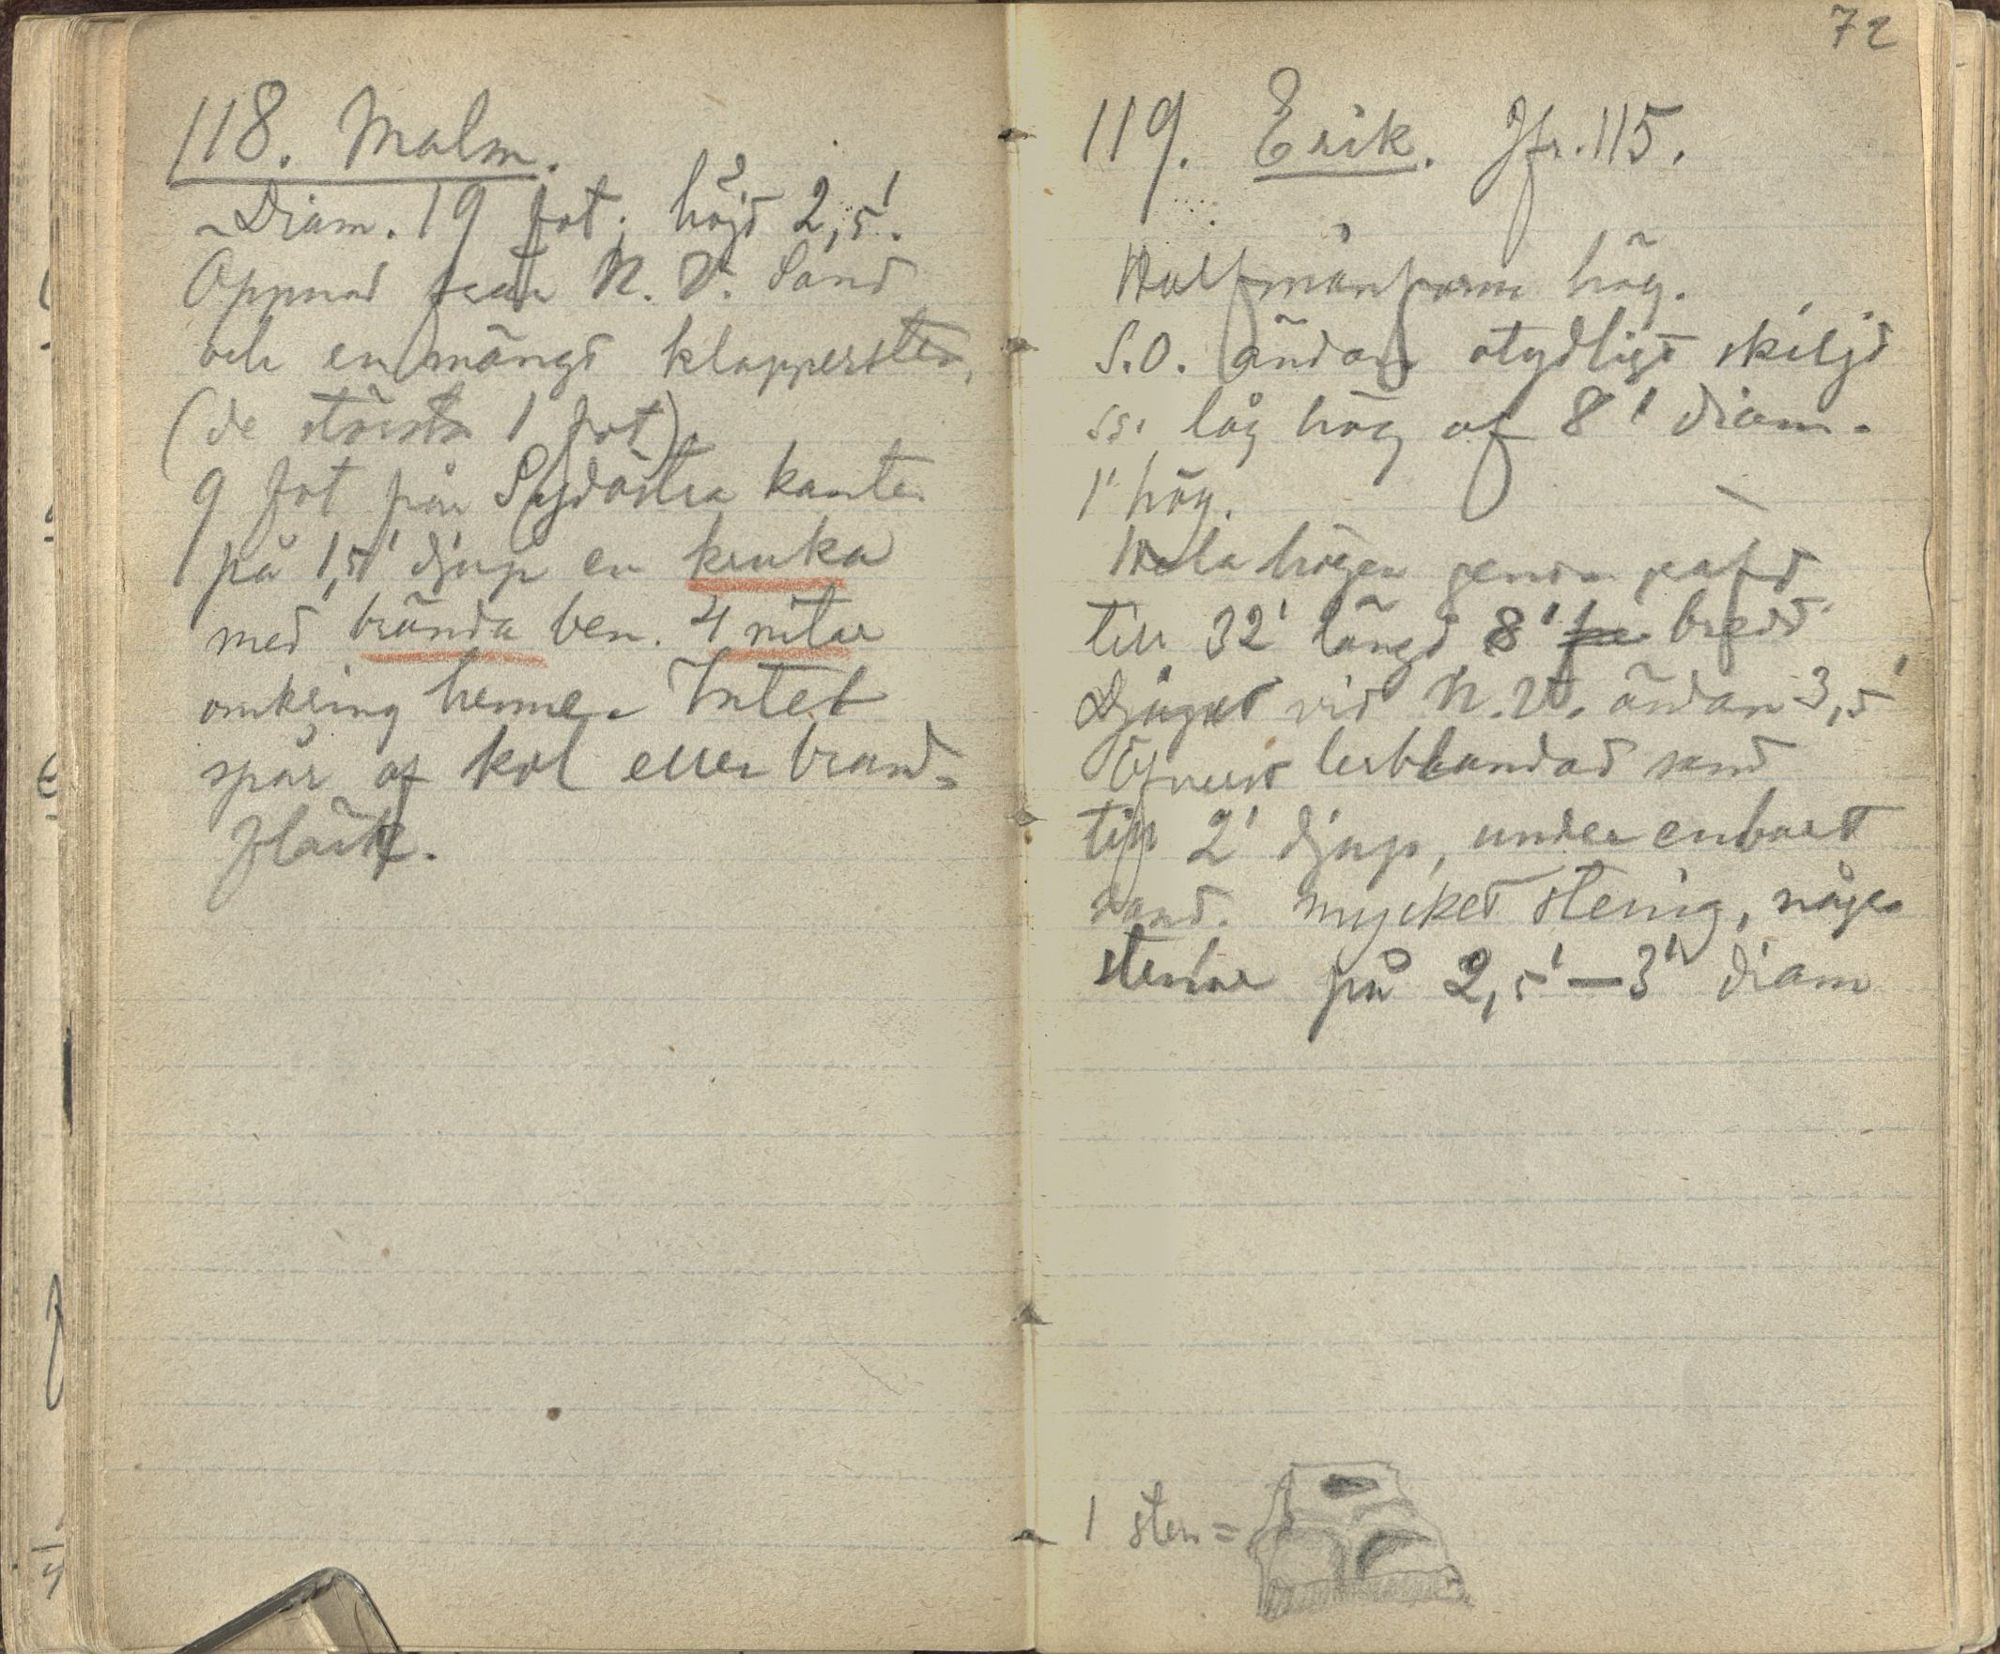 118. Malm.
Diam. 19 fot; höjd 2,5'.
Öppnad från N.V. Sand
och en mängd klappersten,
(de största 1 fot).
9 fot från Sydöstra kanten
på 1,5' djup en kruka
med brända ben. 4 nitar
omkring henne. Intet
spår af kol eller brand-
fläck.
72
119. Erik. Jfr. 115.
Halfmånform hög.
S.O. ändan otydligt skiljd
ss. låg hög af 8' diam.
1' hög.
Hela högen genom
till 32' längd 8' bredd
Djupet vid N.V. ändan 3,5'
Öfverst lerblandad sand
till 2' djup, under enbart
sand. Mycket stenig, några
stenar på 2,5'—3' diam
1 sten =